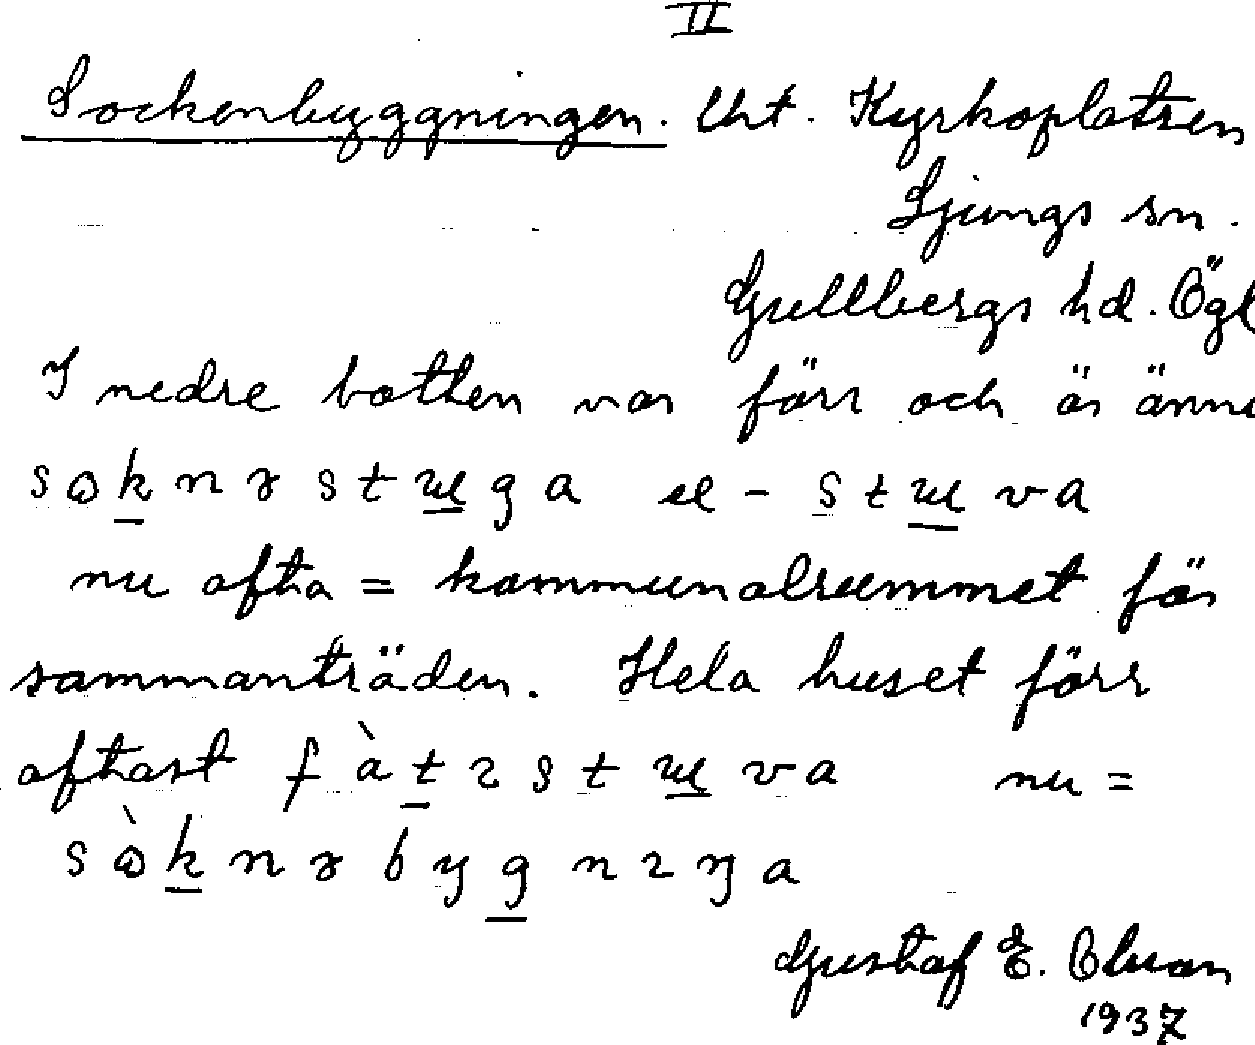 II
Sockenbyggningen. Unt. Kyrkoplatsen
Ljungs sn.
Gullbergs hd. Ögl
I nedre botten var förr och är ännu
sɷknɘstuga el - stuva
nu ofta = kommunalrummet för
sammanträden. Hela huset förr
oftast fàtɿstuva nu =
sɷ̀knɘbygnɿŋa
Gustaf E.
1937